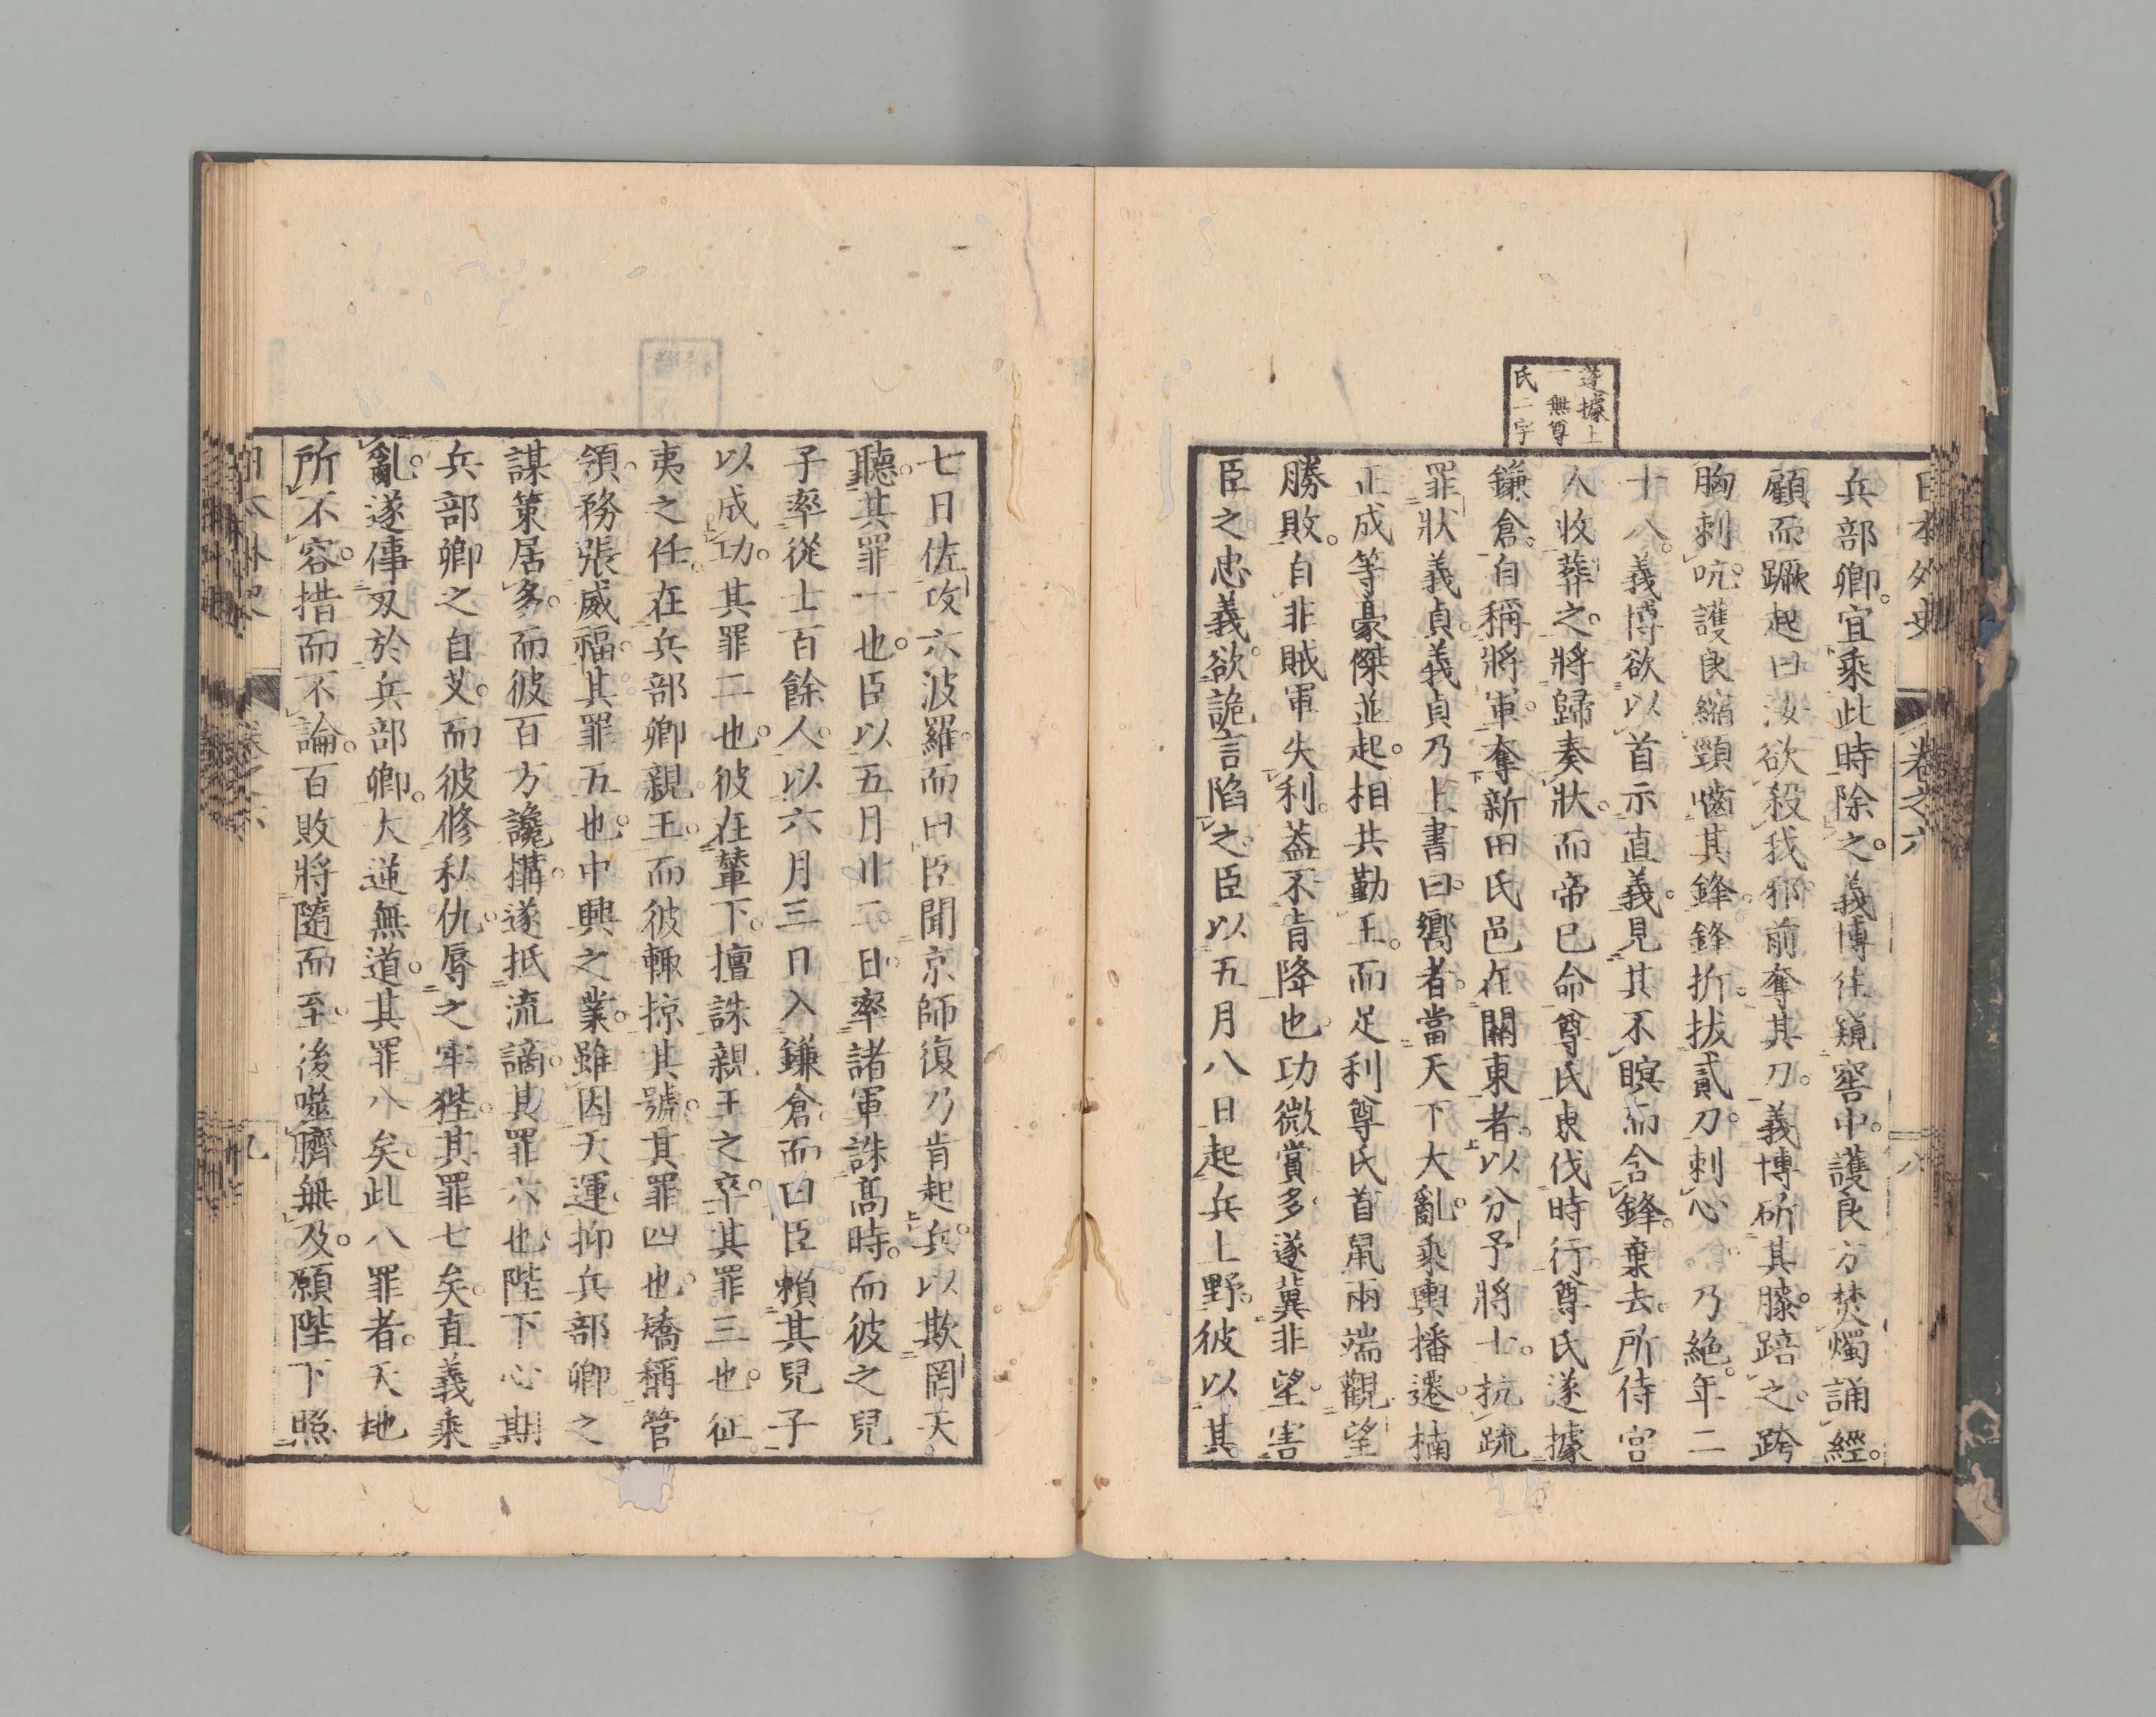 日本外史 卷之六 八
遂據上
一無尊
氏二字
兵部卿。宜乘此時除之。義博往窺窖中。護良方焚燭誦經。
顧而蹶起曰。汝欲殺我邪。前奪其刀。義博斫其膝。踣之。跨
胸刺吭。護良縮頸嚙其鋒。鋒折。拔貳刀。刺心。乃絶。年二
十八。義博欲以首示直義。見其不瞑而含鋒。棄去。所侍宮
人收葬之。將歸奏狀。而帝已命尊氏東伐時行。尊氏遂據
鎌倉。自稱將軍。奪新田氏邑在關東者。以分予將士。抗疏
罪狀義貞。義貞乃上書曰。嚮者。當天下大亂。乘輿播遷。楠
正成等豪傑並起。相共勤王。而足利尊氏首鼠兩端。觀望
勝敗。自非賊軍失利。葢不肯降也。功微賞多。遂冀非望。害
臣之忠義。欲詭言陷之。臣以五月八日起兵上野。彼以其
七日佐攻六波羅。而曰臣聞京師復。乃肯起兵。以欺罔天
聽。其罪一也。臣以五月廿二日。率諸軍誅高時。而彼之兒
子率從士百餘人。以六月三日入鎌倉。而曰臣賴其兒子
以成功。其罪二也。彼在輦下。擅誅親王之卒。其罪三也。征
夷之任。在兵部卿親王。而彼輙掠其號。其罪四也。矯稱管
領。務張威福。其罪五也。中興之業。雖因天運。抑兵部卿之
謀策居多。而彼百方讒搆。遂抵流謫。其罪六也。陛下心期
兵部卿之自艾。而彼修私仇。辱之牢狴。其罪七矣。直義乘
亂。遂倳刄於兵部卿。大逆無道。其罪八矣。此八罪者。天地
所不容。措而不論。百敗將隨而至。後噬臍無及。願陛下照
日本外史 卷之六 九